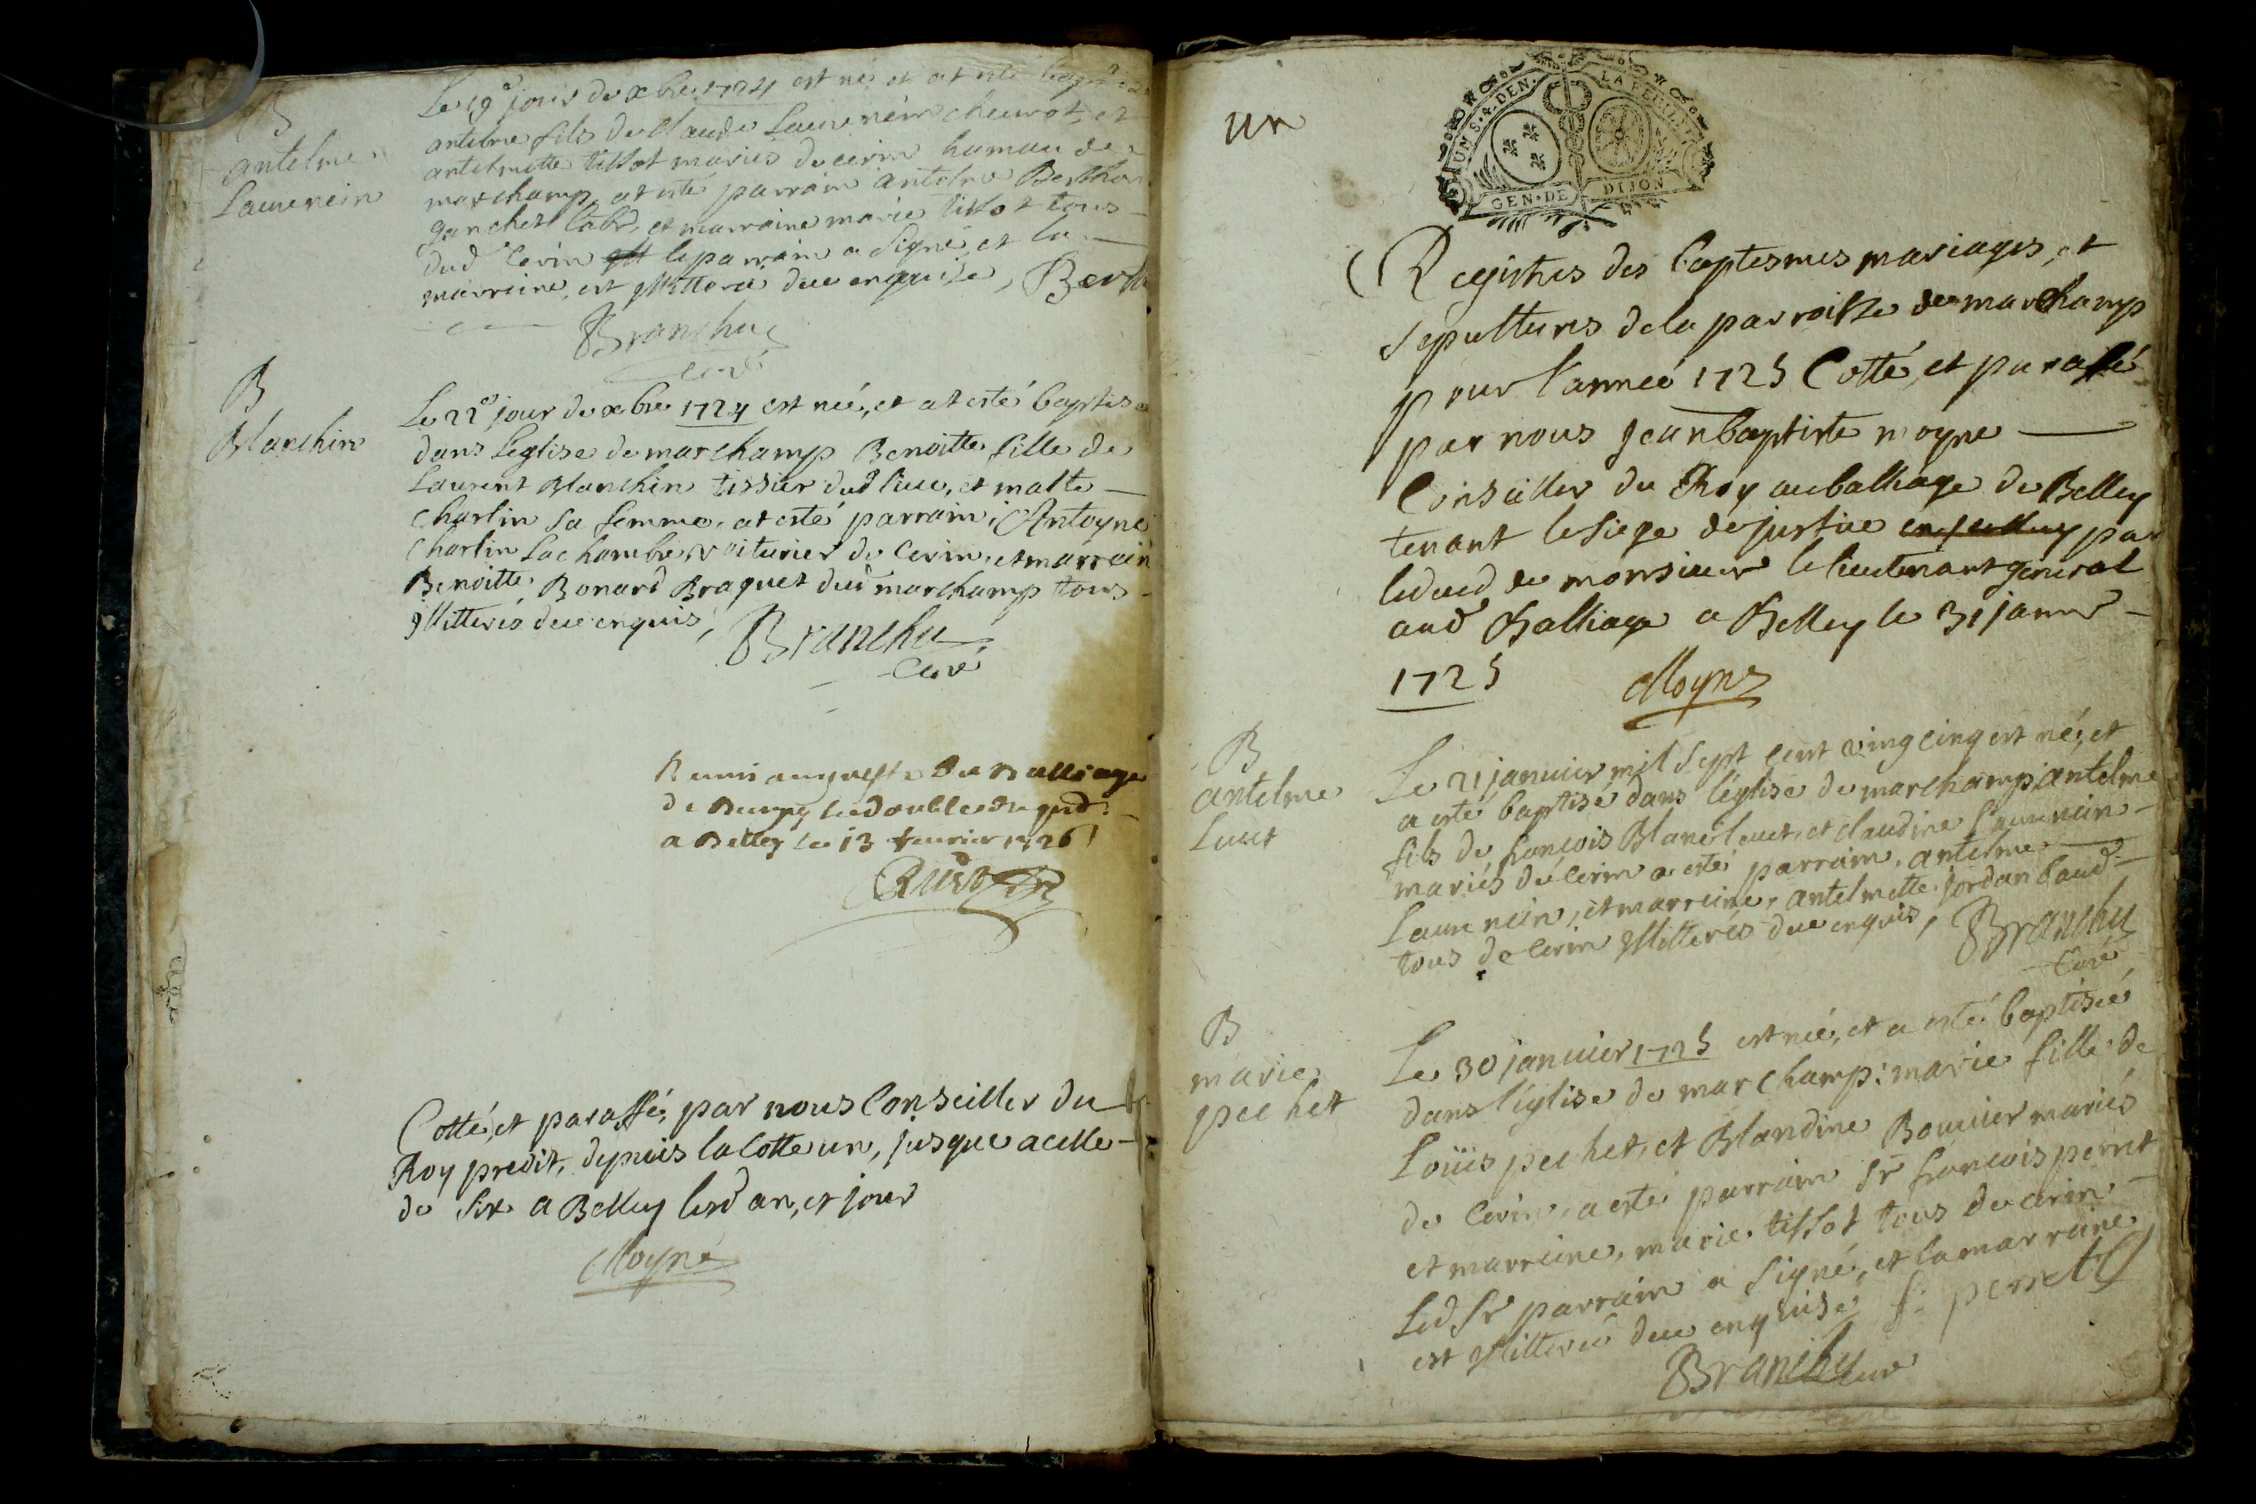 B
antelme
Laurencin
Le 19e jour de xbre 1724 est né et at esté baptisé
antelme fils de Claude Laurencin cheurot, et
antelmette tissot mariés de cerin hameau de
marchamp, at esté parrain antelme Berthon
ganchet labr, et marraine marie tissot tous
dud cerin le parrain a signé, et la
marraine est illiterée deue enquise, Berth
Branchu
Curé
B
Blanchin
Le 22e jour de xbre 1724 est née, et at esté baptisé
dans Leglise de marchamp Benoitte fille de
Laurent Blanchin tissier dud lieu, et matte
charlin sa femme, at esté parrain, Antoyne
charlin Lachambre, voiturier de Cerin, et marrain
Benoitte Bonard Braquet dud marchamp tous
illitterés deue enquis, Branchu
Curé
Remis au greffe du Balliage
de Beugey le double du prnt
a Belley le 13 feurier 1726
Cotté, et paraffé, par nous Conseiller du
Roy predit, depuis la Cotte un, jusque a celle
de six a Belley lesd an, et jour
Moyne
un
UN S. 4. DEN. LA FEUILLE
GEN. DE DIJON
Registres des baptesmes mariages, et
sepultures de la parroisse de marchamp
pour l'anneé 1725 Cotté, et parafé
par nous Jean baptiste moyne
Conseiller du Roy au balliage de Belley
tenant le siege de justice par
le deced de monsieur le lieutenant general
aud Balliage a Belley le 31 janvr
1725 Moyne
B
antelme
Luut
Le 21 januier mil sept cent ving cinq est né, et
a esté baptisé dans l'église de marchamp, antelme
fils de francois Blanc luut, et claudine Laurencin
mariés de Cerin a esté parrain, antelme
Laurencin, et marreine, antelmette jordan baud
tous de cerin illitterés deue enquis, Branchu
Curé
B
marie
pechet
Le 30 januier 1725 est neé, et a esté baptiseé
dans l'église de marchamp: marie fille de
Loüis pechet, et Blandine Bouuier mariés
de Cerin, a esté parrain Sr francois perret
et marreine, marie tissot tous de cerin
Led Sr parrain a signé, et la marraine
est illitereé deue enquise f: perret
Branchu Curé